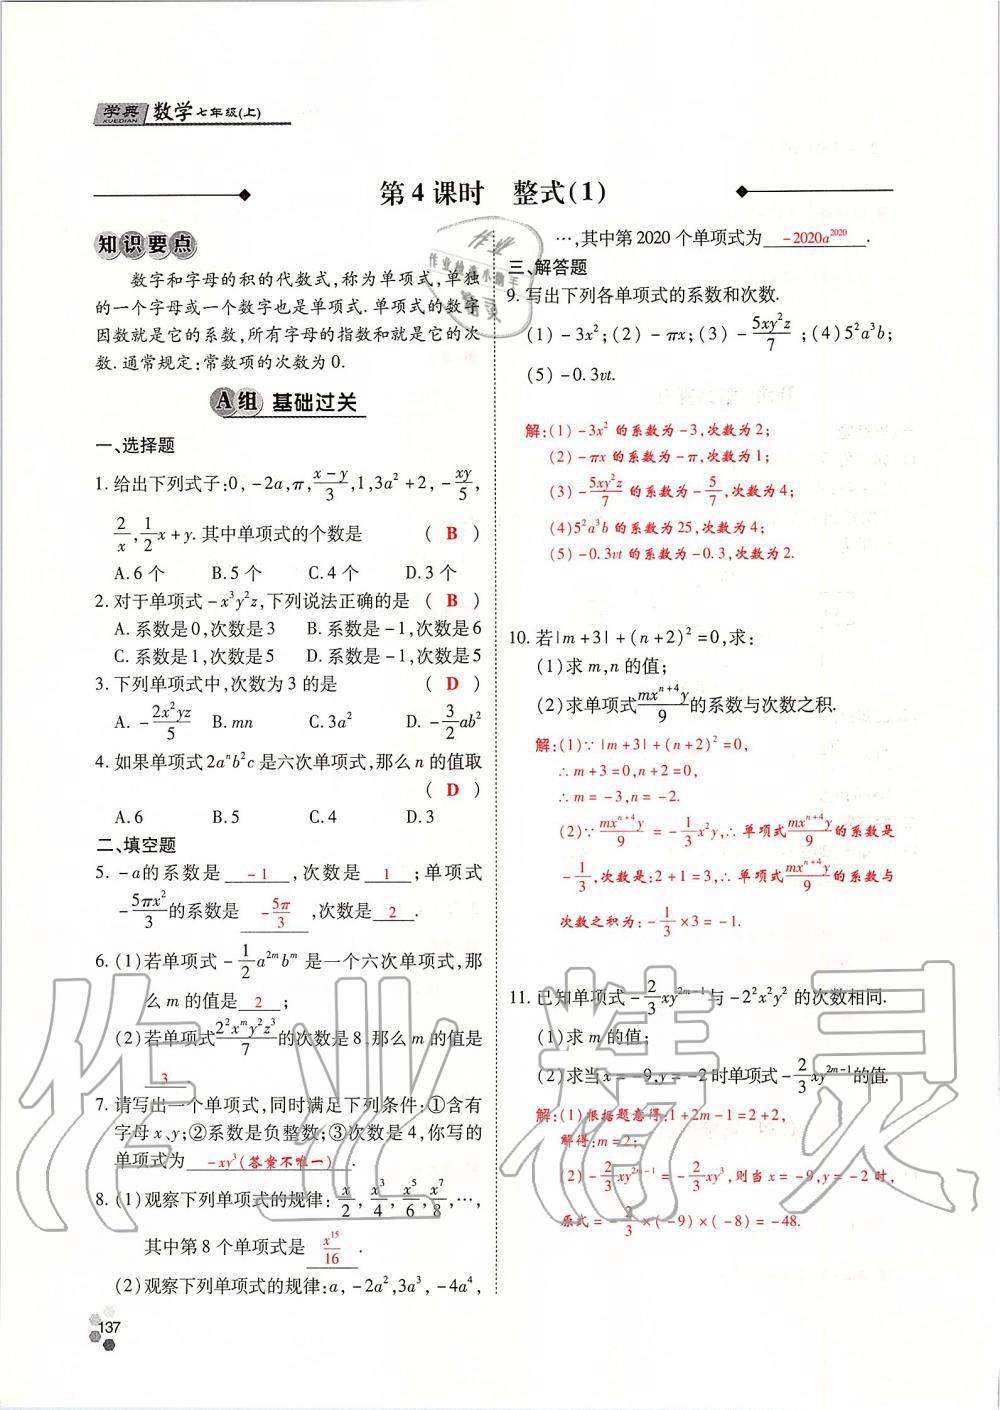 学典 XUEDIAN 数学 七年级(上)
第4课时 整式(1)
知识要点
数字和字母的积的代数式,称为单项式,单独
的一个字母或一个数字也是单项式.单项式的数字
因数就是它的系数,所有字母的指数和就是它的次
数.通常规定:常数项的次数为0.
A组 基础过关
一、选择题
1. 给出下列式子:0,-2a,π,(x-y)/3,1,3a²+2,-xy/5,
2/x,1/2x+y.其中单项式的个数是 ( B )
A.6个 B.5个 C.4个 D.3个
2. 对于单项式-x³y²z,下列说法正确的是 ( B )
A.系数是0,次数是3 B.系数是-1,次数是6
C.系数是1,次数是5 D.系数是-1,次数是5
3. 下列单项式中,次数为3的是 ( D )
A. -2x²yz/5 B. mn C. 3a² D. -3/2ab²
4. 如果单项式2aⁿb²c是六次单项式,那么n的值取
( D )
A.6 B.5 C.4 D.3
二、填空题
5. -a的系数是 -1 ,次数是 1 ;单项式
-5πx²/3的系数是 -5π/3 ,次数是 2 .
6. (1)若单项式-1/2a²ᵐbᵐ是一个六次单项式,那
么m的值是 2 ;
(2)若单项式2²xᵐy²z³/7的次数是8,那么m的值是
3 .
7. 请写出一个单项式,同时满足下列条件:①含有
字母x、y;②系数是负整数;③次数是4,你写的
单项式为 -xy³(答案不唯一) .
8. (1)观察下列单项式的规律:x/2,x³/4,x⁵/6,x⁷/8,…,
其中第8个单项式是 x¹⁵/16 .
(2)观察下列单项式的规律:a,-2a²,3a³,-4a⁴,
137
…,其中第2020个单项式为 -2020a²⁰²⁰ .
三、解答题
9. 写出下列各单项式的系数和次数.
(1)-3x²;(2)-πx;(3)-5xy²z/7;(4)5²a³b;
(5)-0.3vt.
解:(1)-3x²的系数为-3,次数为2;
(2)-πx的系数为-π,次数为1;
(3)-5xy²z/7的系数为-5/7,次数为4;
(4)5²a³b的系数为25,次数为4;
(5)-0.3vt的系数为-0.3,次数为2.
10. 若|m+3|+(n+2)²=0,求:
(1)求m,n的值;
(2)求单项式mxⁿ⁺⁴y/9的系数与次数之积.
解:(1)∵|m+3|+(n+2)²=0,
∴m+3=0,n+2=0,
∴m=-3,n=-2.
(2)∵mxⁿ⁺⁴y/9=-1/3x²y,∴单项式mxⁿ⁺⁴y/9的系数是
-1/3,次数是:2+1=3,∴单项式mxⁿ⁺⁴y/9的系数与
次数之积为:-1/3×3=-1.
11. 已知单项式-2/3xy²ᵐ⁻¹与-2²x²y²的次数相同.
(1)求m的值;
(2)求当x=-9,y=-2时单项式-2/3xy²ᵐ⁻¹的值.
解:(1)根据题意得:1+2m-1=2+2,
解得:m=2;
(2)-2/3xy²ᵐ⁻¹=-2/3xy³,则当x=-9,y=-2时,
原式=-2/3×(-9)×(-8)=-48.
作业精灵